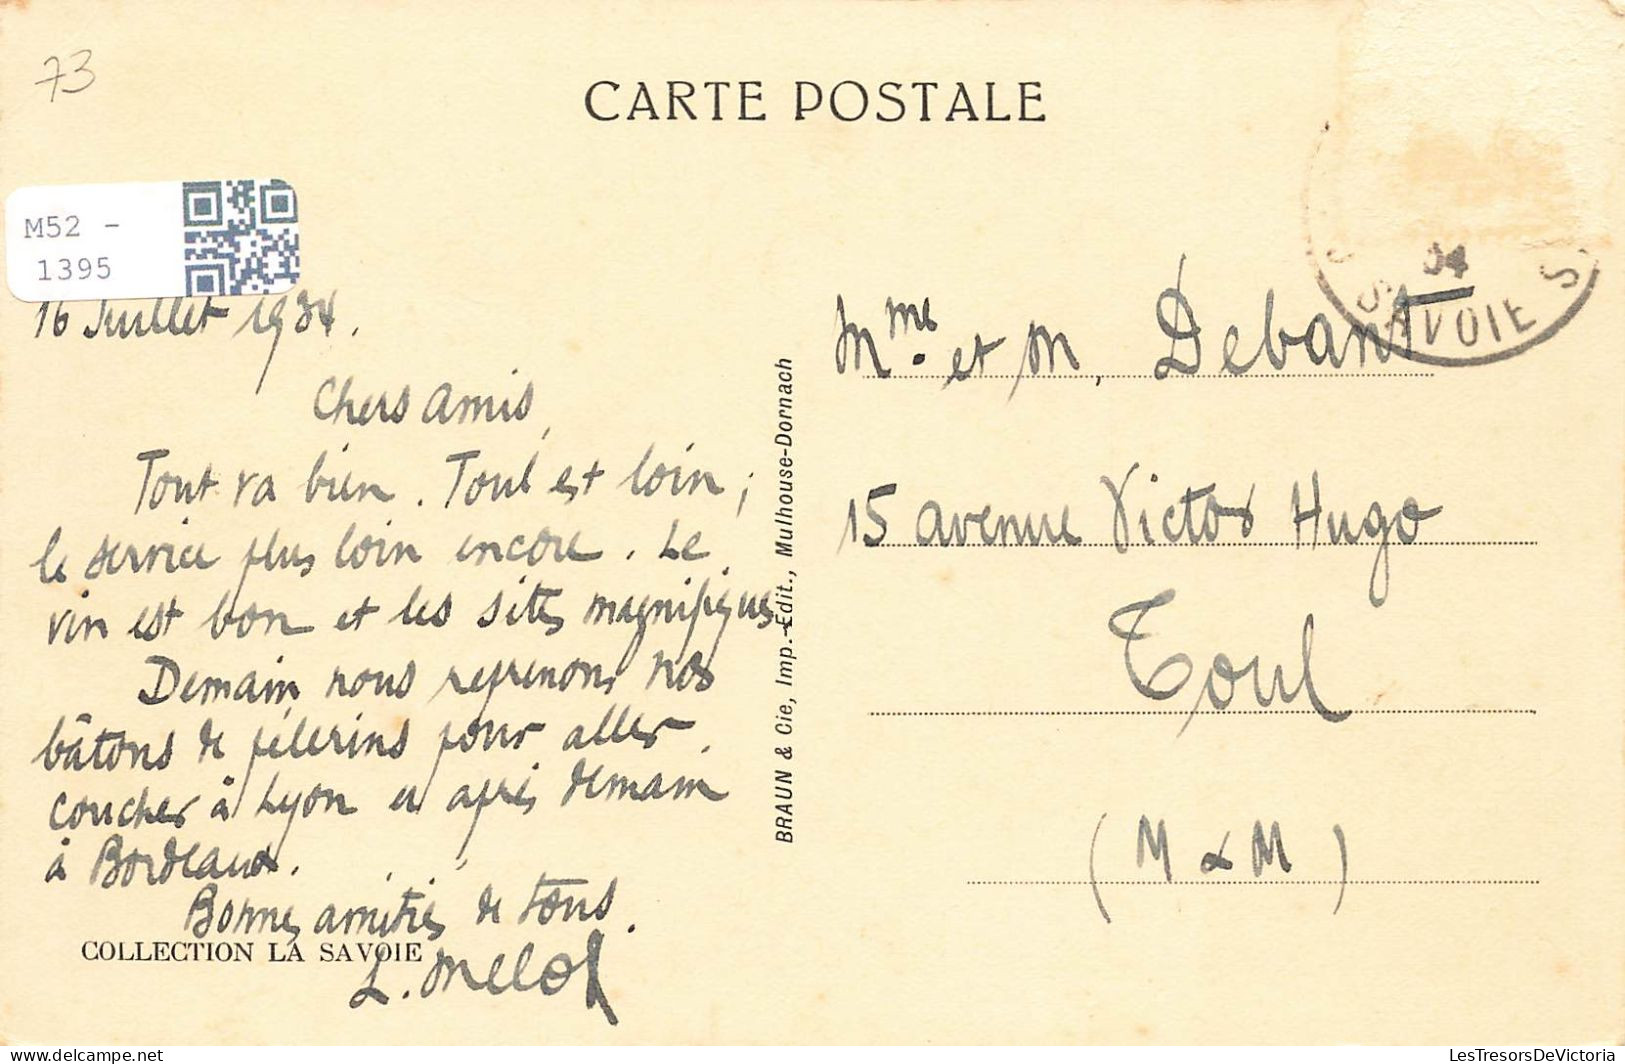 73
CARTE POSTALE
M52 -
1395
16 Juillet 1934.
Chers Amis,
Tout va bien. Toul est loin ;
le service plus loin encore. Le
vin est bon et les sites magnifiques.
Demain, nous reprenons nos
bâtons de pélerins pour aller
coucher à Lyon et après demain
à Bordeaux.
Bonnes amitiés de tous.
L. Melot
COLLECTION LA SAVOIE
BRAUN & Cie, Imp.-Edit., Mulhouse-Dornach
34
SAVOIE
Mme. et M. Debant
15 avenue Victor Hugo
Toul
(M & M)
LesTresorsDeVictoria